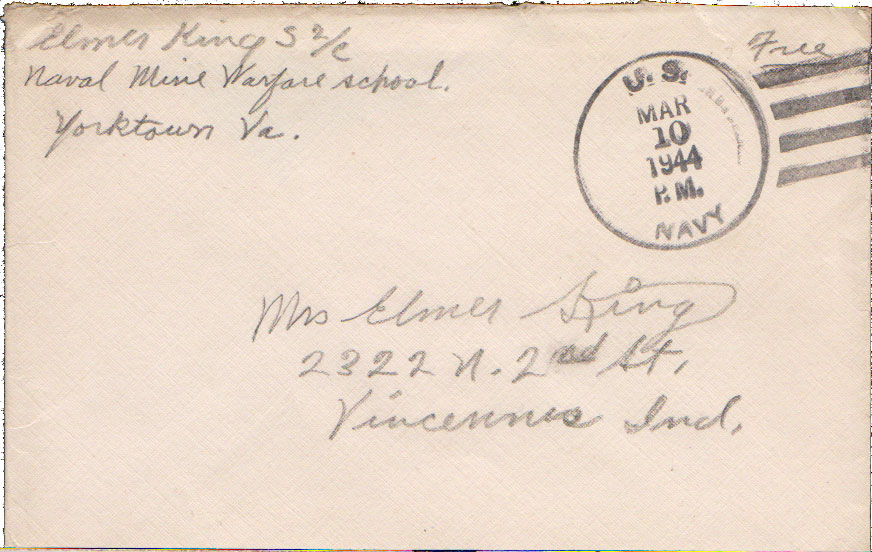 Elmer King S 2/c
Naval Mine Warfare school.
Yorktown Va.
Free
U.S.
MAR
10
1944
P.M.
NAVY
Mrs Elmer King
2322 N. 2nd St.
Vincennes Ind.